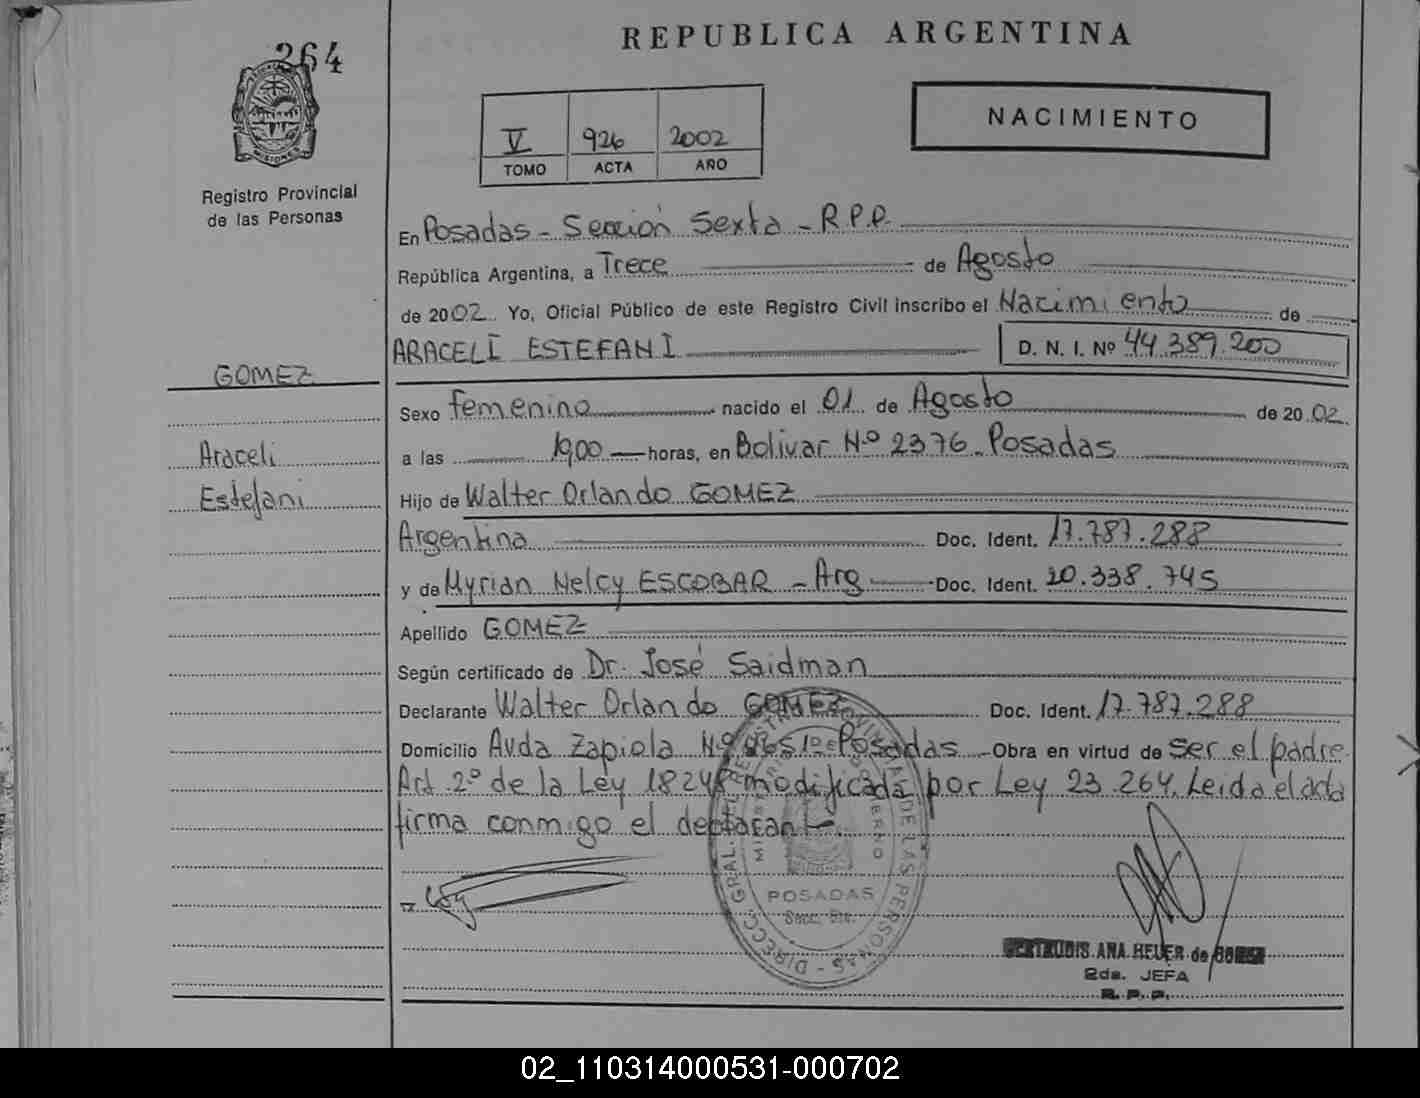 REPUBLICA ARGENTINA
264
MISIONES
Registro Provincial
de las Personas
V 926 2002
TOMO ACTA AÑO
NACIMIENTO
En Posadas - Sección Sexta - R.P.P.
República Argentina, a Trece de Agosto
de 2002 Yo, Oficial Público de este Registro Civil inscribo el Nacimiento de
ARACELI ESTEFANI D. N. I. Nº 44.389.200
GOMEZ
Sexo femenino nacido el 01 de Agosto de 2002
Araceli
a las 19,00 horas, en Bolivar Nº 2376 - Posadas
Estefani
Hijo de Walter Orlando GOMEZ
Argentina Doc. Ident. 17.787.288
y de Myrian Nelcy ESCOBAR - Arg Doc. Ident. 20.338.745
Apellido GOMEZ
Según certificado de Dr. José Saidman
Declarante Walter Orlando GOMEZ Doc. Ident. 17.787.288
Domicilio Avda Zapiola Nº Posadas Obra en virtud de ser el padre
Art 2º de la Ley 18248 modificada por Ley 23.264. Leida el acta
firma conmigo el
DIRECC. GRAL. DEL REGISTRO PROVINCIAL DE LAS PERSONAS
POSADAS
GERTRUDIS ANA HEUER de
2da. JEFA
R. P. P.
02_110314000531-000702